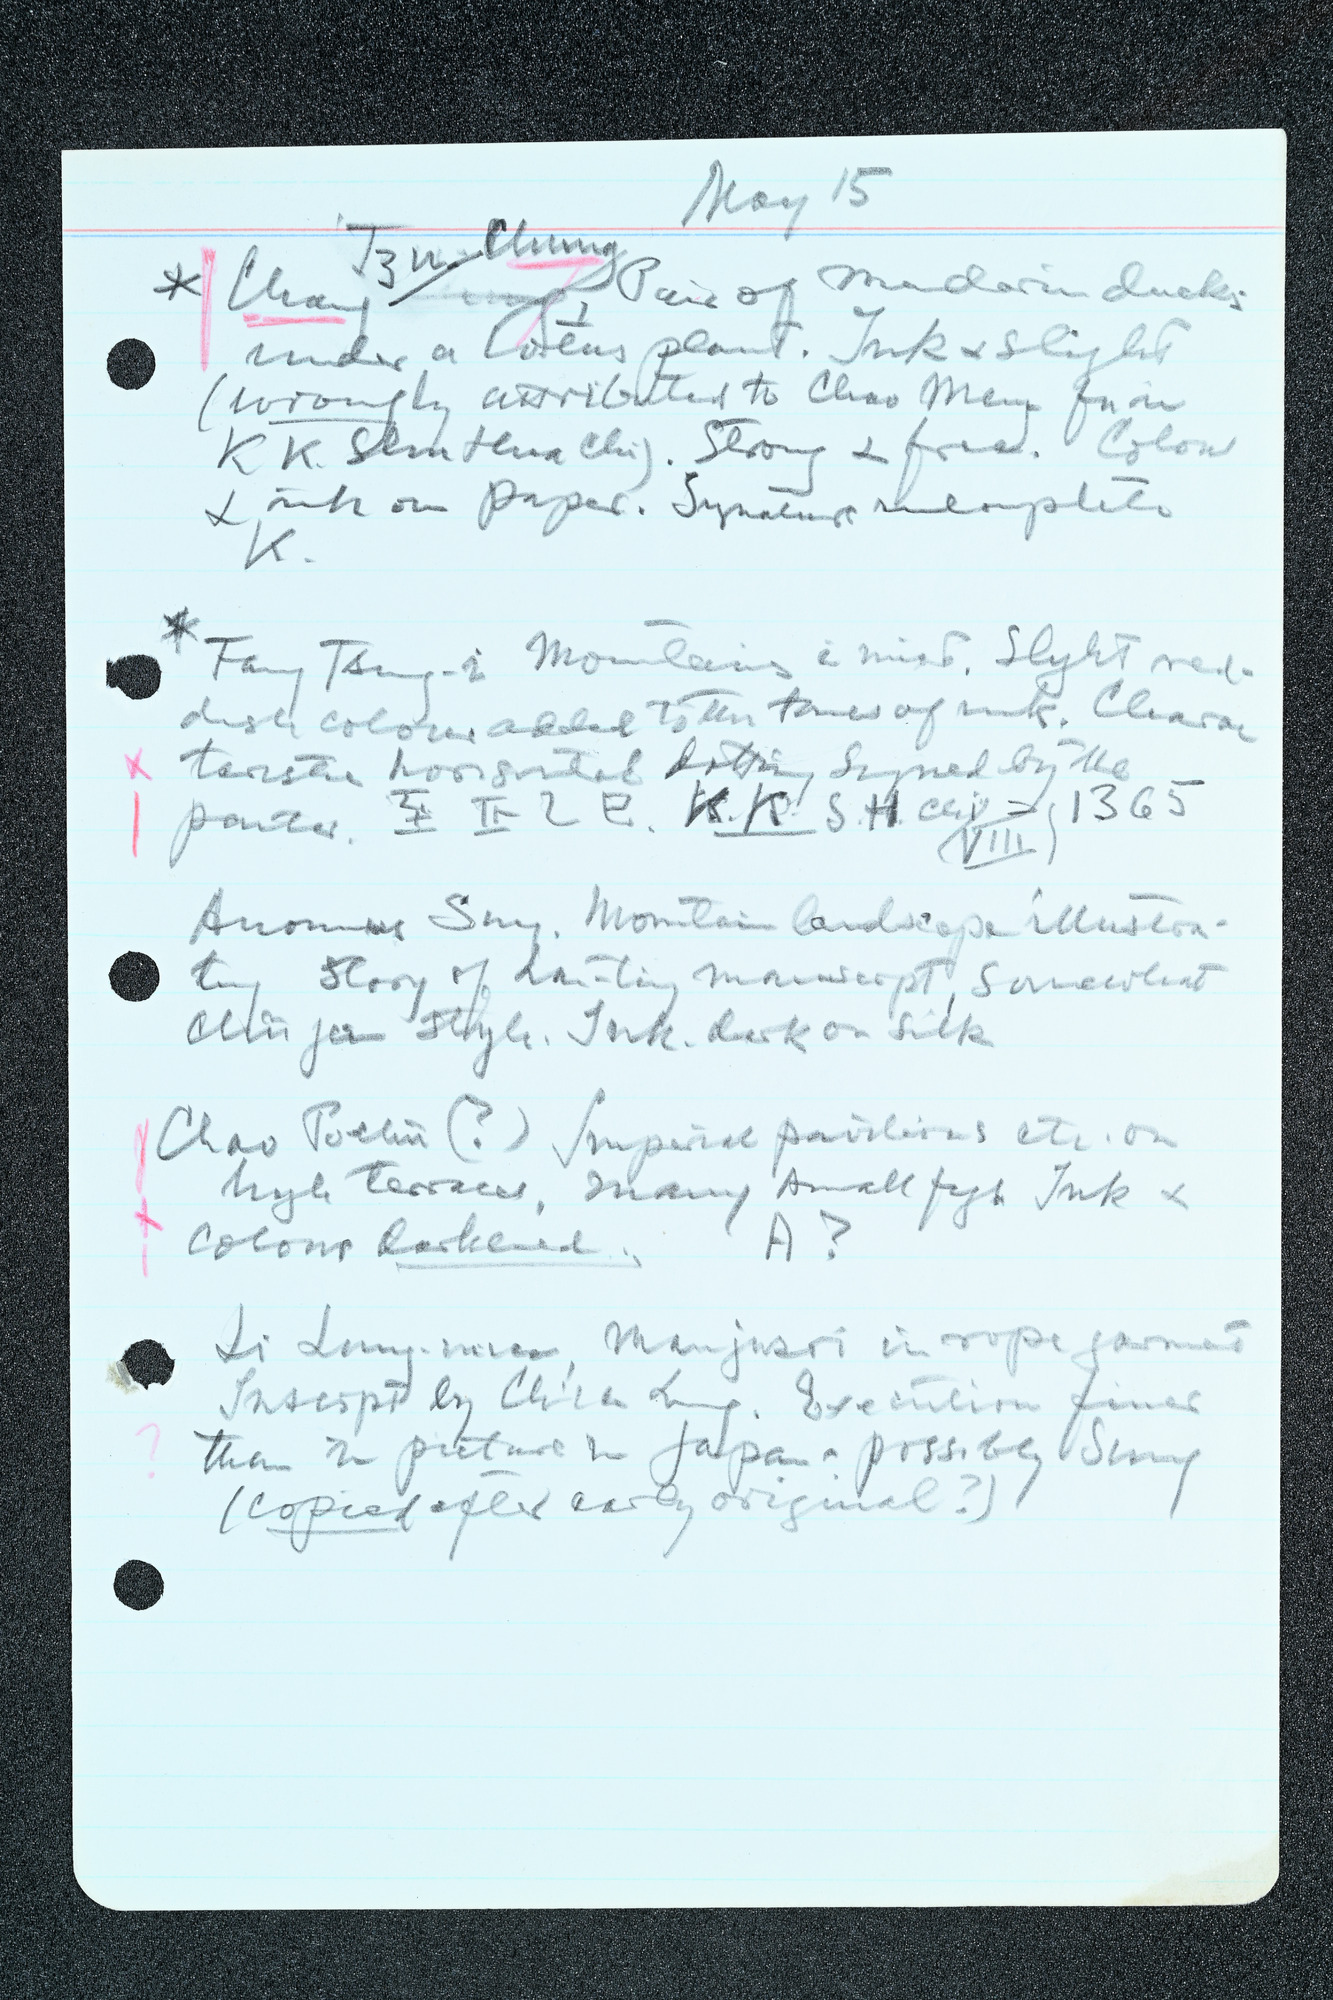 May 15
Tzu-Chung
* Chang Pair of Mandarin ducks
under a Lotus plant. Ink & slight
(wrongly attributed to Chao Meng fu in
K K. Shu Hua chi). Strong & free. Colour
& ink on paper. Signature incomplete
K.
* Fang Tsung-i Mountains in mist. Slight red-
dish colour added to the tones of ink. Charac
teristic horizontal dotting signed by the
painter. K.K. S.H. chi = 1365
(VIII)
Anonymous Sung. Mountain landscape illustra-
ting story of Lan-ting manuscript, somewhat
Chü jan style. Ink. dark on silk
Chao Po-chü (?) Imperial pavilions etc. on
high terraces, many small figs. Ink &
colour darkened. A ?
Li Lung-mien, Manjusri in rope garment
Inscript by Ch'ien Lung. Execution finer
? than in picture in Japan - possibly Sung
(copied after early original?)